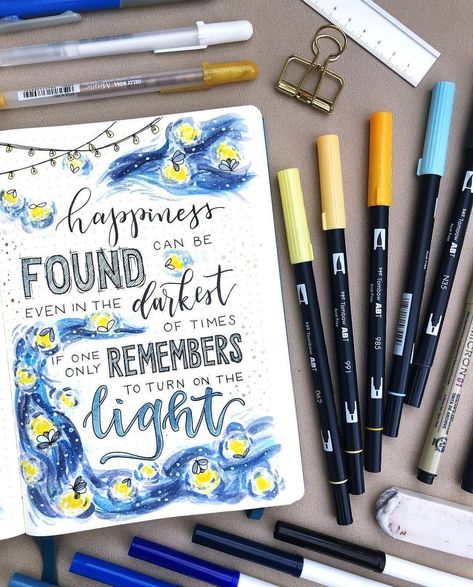 happiness
CAN BE
FOUND
EVEN IN THE
darkest
OF TIMES
IF ONE
ONLY
REMEMBERS
TO TURN ON THE
light
GELLY ROLL
Tombow ABT
062
Tombow ABT
991
Tombow ABT
985
N35
MICRON 01